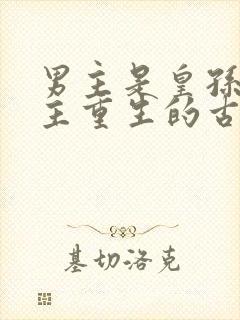 男主是皇孙
主重生的古
基切洛克